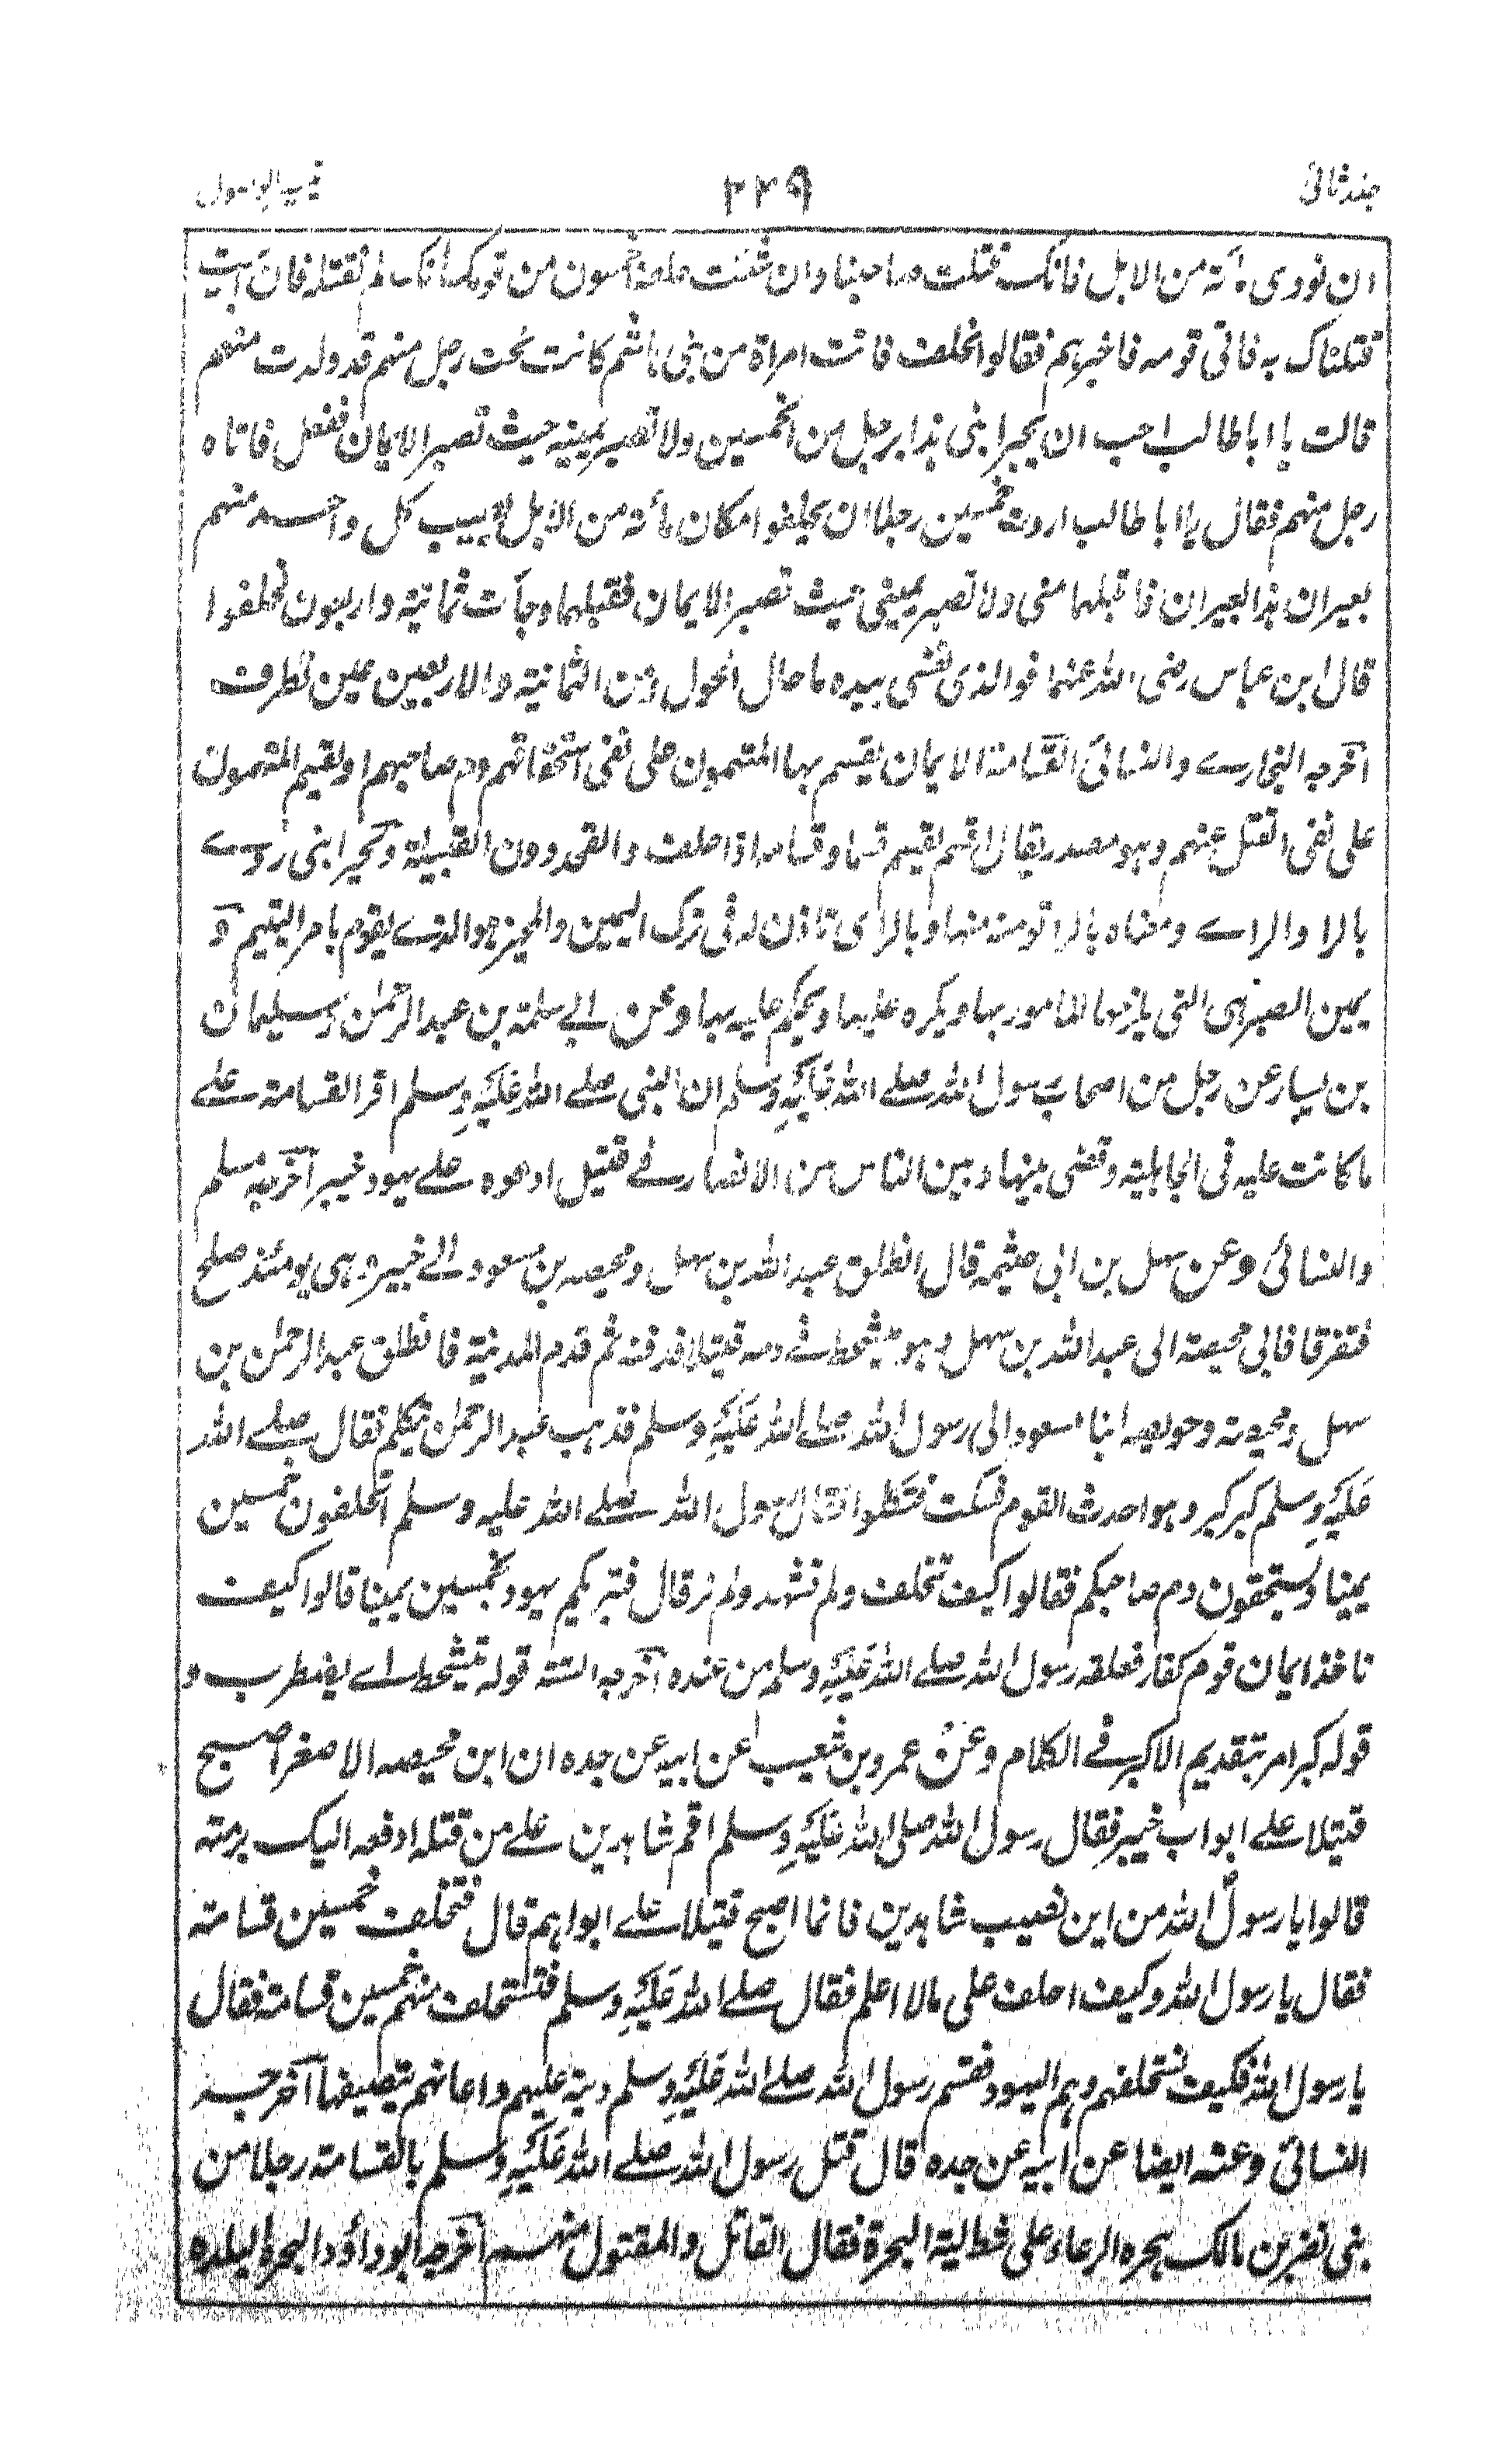 جلد ثانی ٢٢٩ تيسير الوصول
ان تودى مائة من الابل فانك قتلت صاحبنا وان شئت حلف خمسون من قومك انك لم تقتله فان ابيت
قتلناك به فاتى قومه فاخبرهم فقالوا نحلف فاتت امراة من بنى هاشم كانت تحت رجل منهم قد ولدت منهم
قالت يا ابا طالب احب ان يجير ابنى هذا برجل من الخمسين ولا تصبر يمينه حيث تصبر الايمان ففعل فاتاه
رجل منهم فقال يا ابا طالب اردت خمسين رجلا ان يحلفوا مكان مائة من الابل يصيب كل واحد منهم
بعيران هذا لبعيران فاقبلهما منى ولا تصبر يمينى حيث تصبر الايمان فقبلهما وجآءت ثمانية واربعون فحلفوا
قال ابن عباس رضى الله عنهما فوالذى نفسى بيده ما حال الحول ومن الثمانية والاربعين عين تطرف
اخرجه البخارے والنسائى القسامة الايمان يقسم بها المتهمون على نفى استحقاقهم دم صاحبهم او يقيم المتهمون
على نفى القتل عنهم وهو مصدر يقال اقسم يقسم قسما وقسامه اذا حلف والفخذ دون القبيلة ويجير ابنى روے
بالزا والراے ومعناه بالزا تومنه منها وبالراى تاذن له فى ترك اليمين والمجيز هو الذے يقوم بامر اليتيم و
يمين الصبر هى التى يلزمها المامور بها ويكره عليها ويحكم عليه بها وعن ابے سلمة بن عبد الرحمن وسليمان
بن يسار عن رجل من اصحاب رسول الله صلے الله عليه وسلم ان النبى صلے الله عليه وسلم اقر القسامة علے
ما كانت عليه فى الجاهلية وقضى بينها وبين الناس من الانصار فے قتيل ادعوه علے يهود خيبر اخرجه مسلم
والنسائى وعن سهل بن ابى حثمه قال انطلق عبد الله بن سهل ومحيصه بن مسعود الے خيبر وهى يومئذ صلح
فتفرقا فاتى محيصة الى عبد الله بن سهل وهو يتشحط فے دمه قتيلا فدفنه ثم قدم المدينة فانطلق عبد الرحمن بن
سهل ومحيصة وحويصه ابنا مسعود الى رسول الله صلے الله عليه وسلم فذهب عبد الرحمن يتكلم فقال صلے الله
عليه وسلم كبر كبر وهو احدث القوم فسكت فتكلما فقال رسول الله صلے الله عليه وسلم اتحلفون خمسين
يمينا وتستحقون دم صاحبكم فقالوا كيف نحلف ولم نشهد ولم نر قال فتبريكم يهود بخمسين يمينا قالوا كيف
ناخذ ايمان قوم كفار فعقله رسول الله صلے الله عليه وسلم من عنده اخرجه الستة قوله يتشحط اے يضطرب و
قوله كبر امر بتقديم الاكبر فے الكلام وعن عمرو بن شعيب عن ابيه عن جده ان ابن محيصه الاصغر اصبح
قتيلا علے ابواب خيبر فقال رسول الله صلى الله عليه وسلم اقم شاهدين علے من قتله ادفعه اليك برمته
قالوا يا رسول الله من اين نصيب شاهدين فانما اصبح قتيلا علے ابوابهم قال فتحلف خمسين قسامة
فقال يا رسول الله وكيف احلف على مالا اعلم فقال صلے الله عليه وسلم فتستحلف منهم خمسين قسامة فقال
يا رسول الله فكيف نستحلفهم وهم اليهود فقسم رسول الله صلے الله عليه وسلم دية عليهم واعانهم بنصفها اخرجه
النسائى وعنه ايضا عن ابيه عن جده قال قتل رسول الله صلے الله عليه وسلم بالقسامة رجلا من
بنى نضر بن مالك بجرة الرعاء على شط لية البحرة فقال القاتل والمقتول منهم اخرجه ابو داؤد البحرة البلده